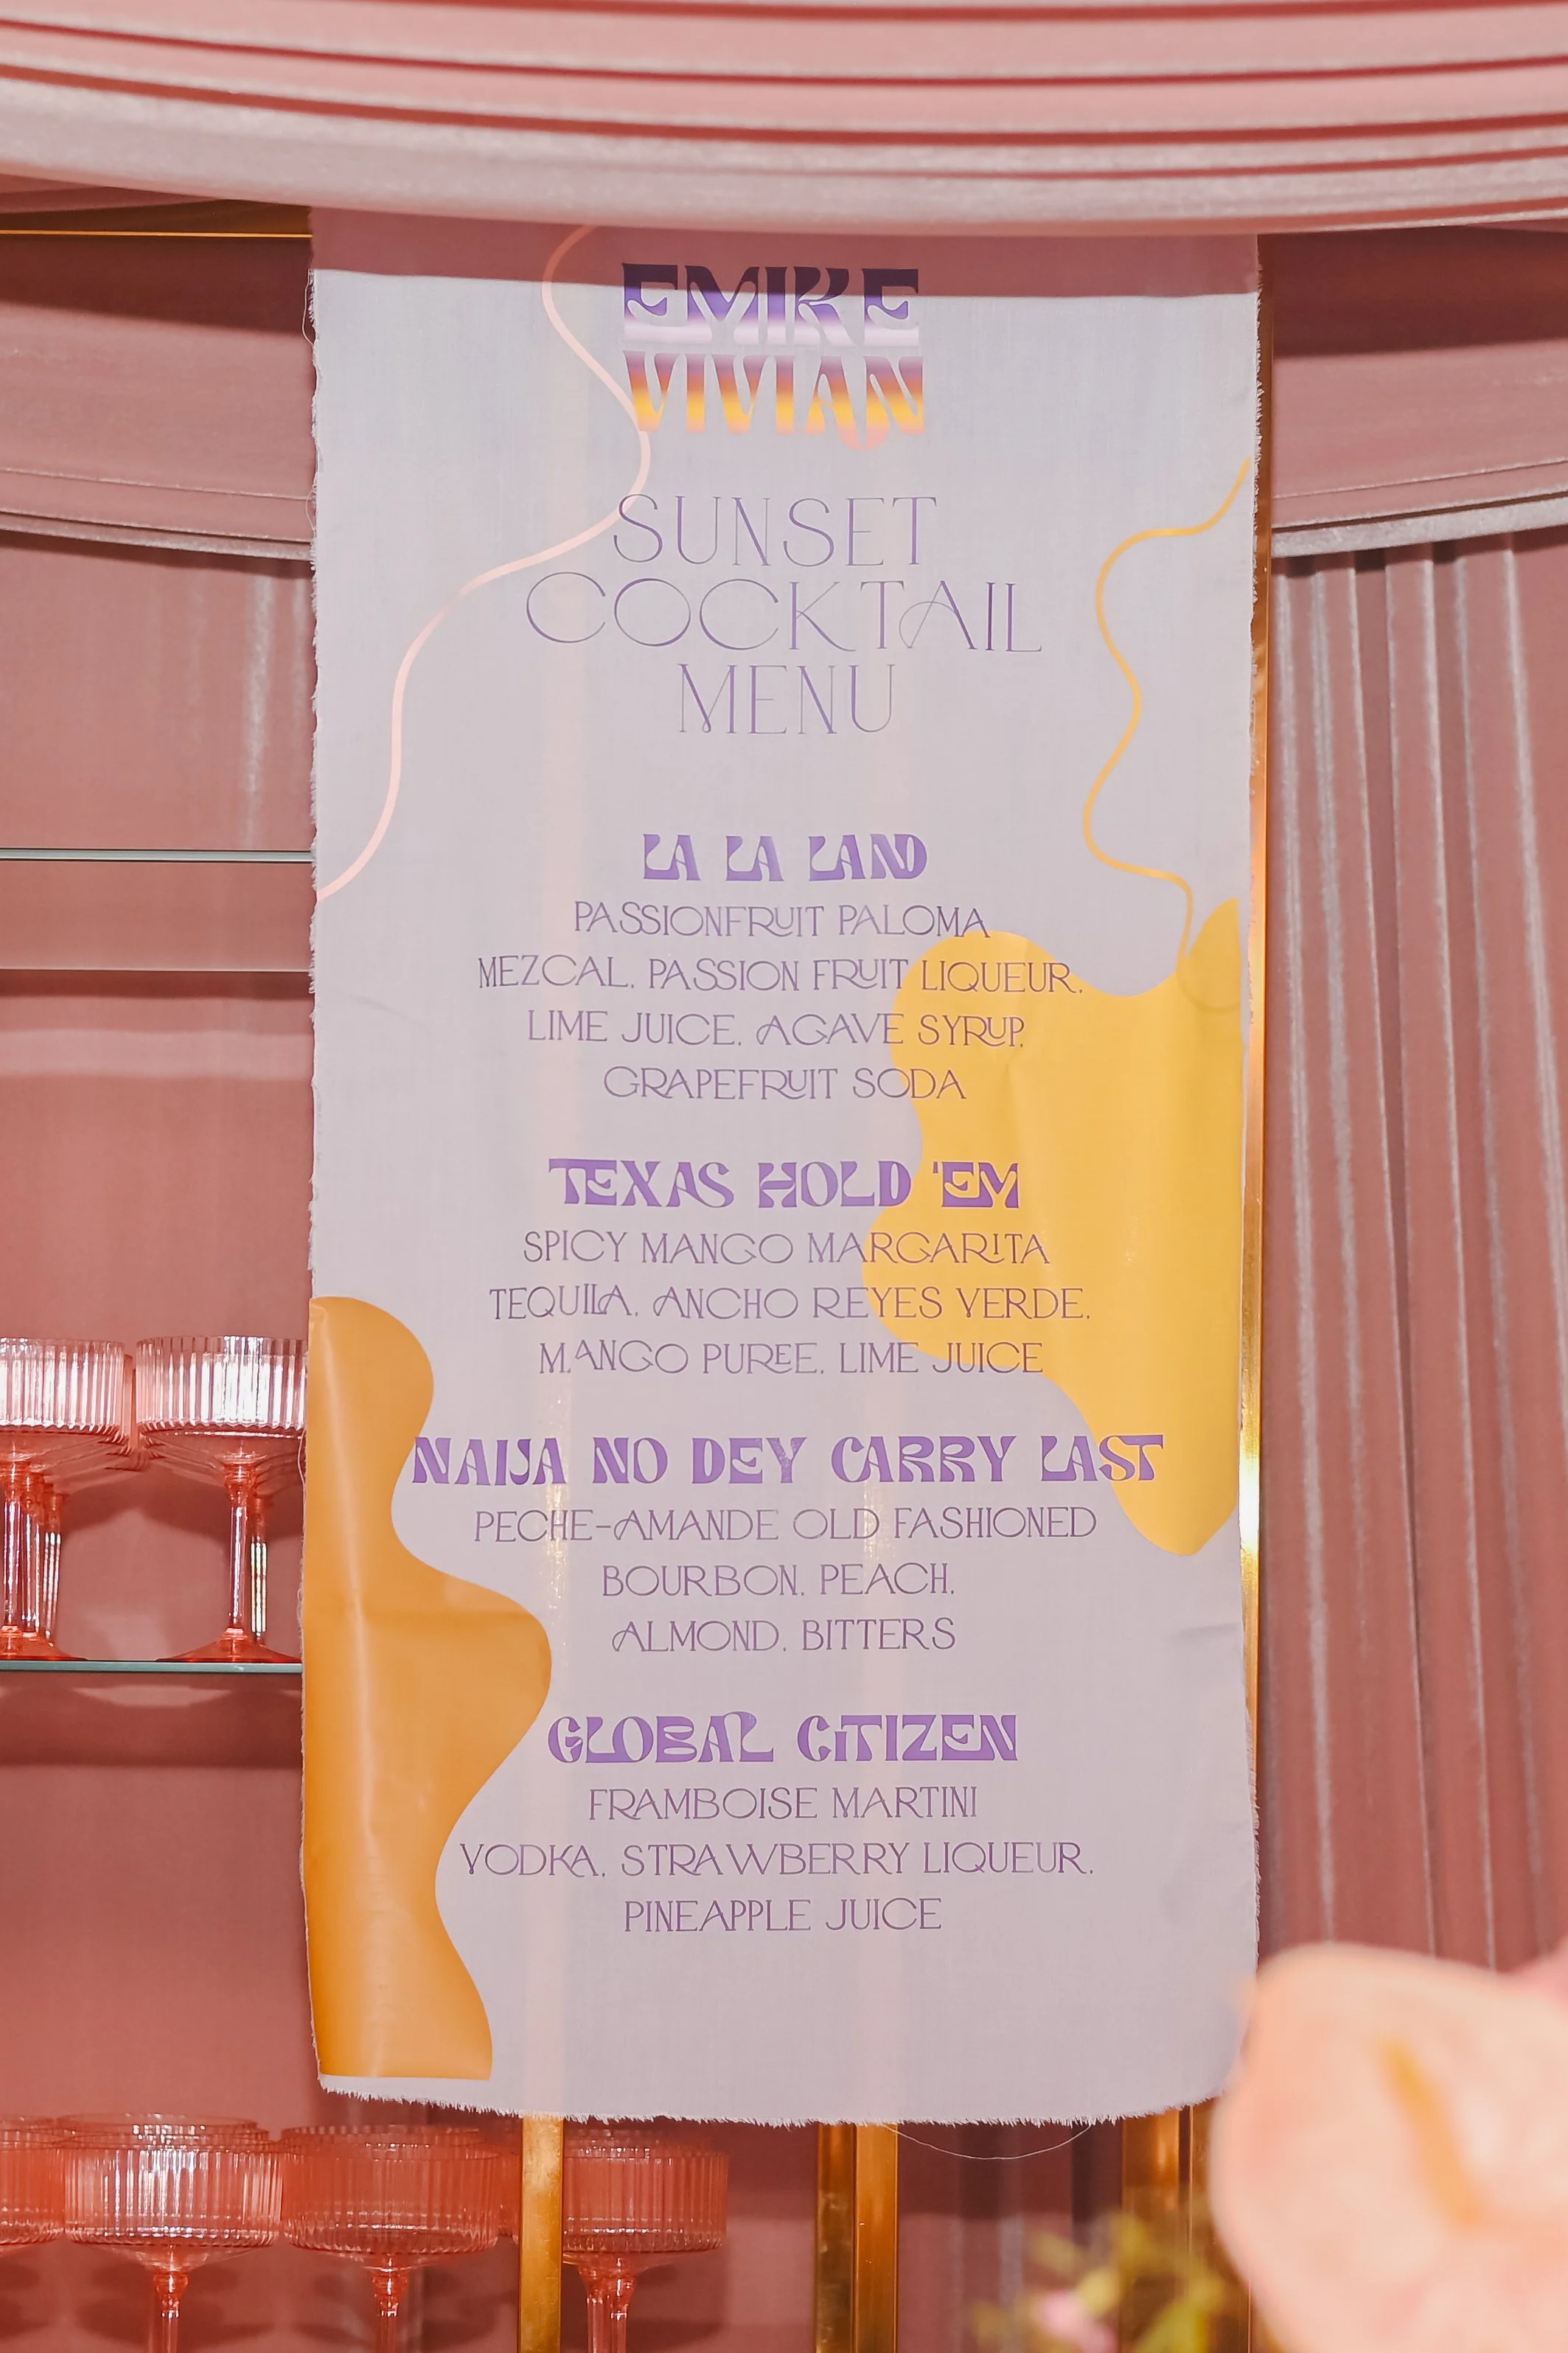 EMIKE
VIVIAN
SUNSET
COCKTAIL
MENU
LA LA LAND
PASSIONFRUIT PALOMA
MEZCAL, PASSION FRUIT LIQUEUR,
LIME JUICE, AGAVE SYRUP,
GRAPEFRUIT SODA
TEXAS HOLD 'EM
SPICY MANGO MARGARITA
TEQUILA, ANCHO REYES VERDE,
MANGO PUREE, LIME JUICE
NAIJA NO DEY CARRY LAST
PECHE-AMANDE OLD FASHIONED
BOURBON, PEACH,
ALMOND, BITTERS
GLOBAL CITIZEN
FRAMBOISE MARTINI
VODKA, STRAWBERRY LIQUEUR,
PINEAPPLE JUICE